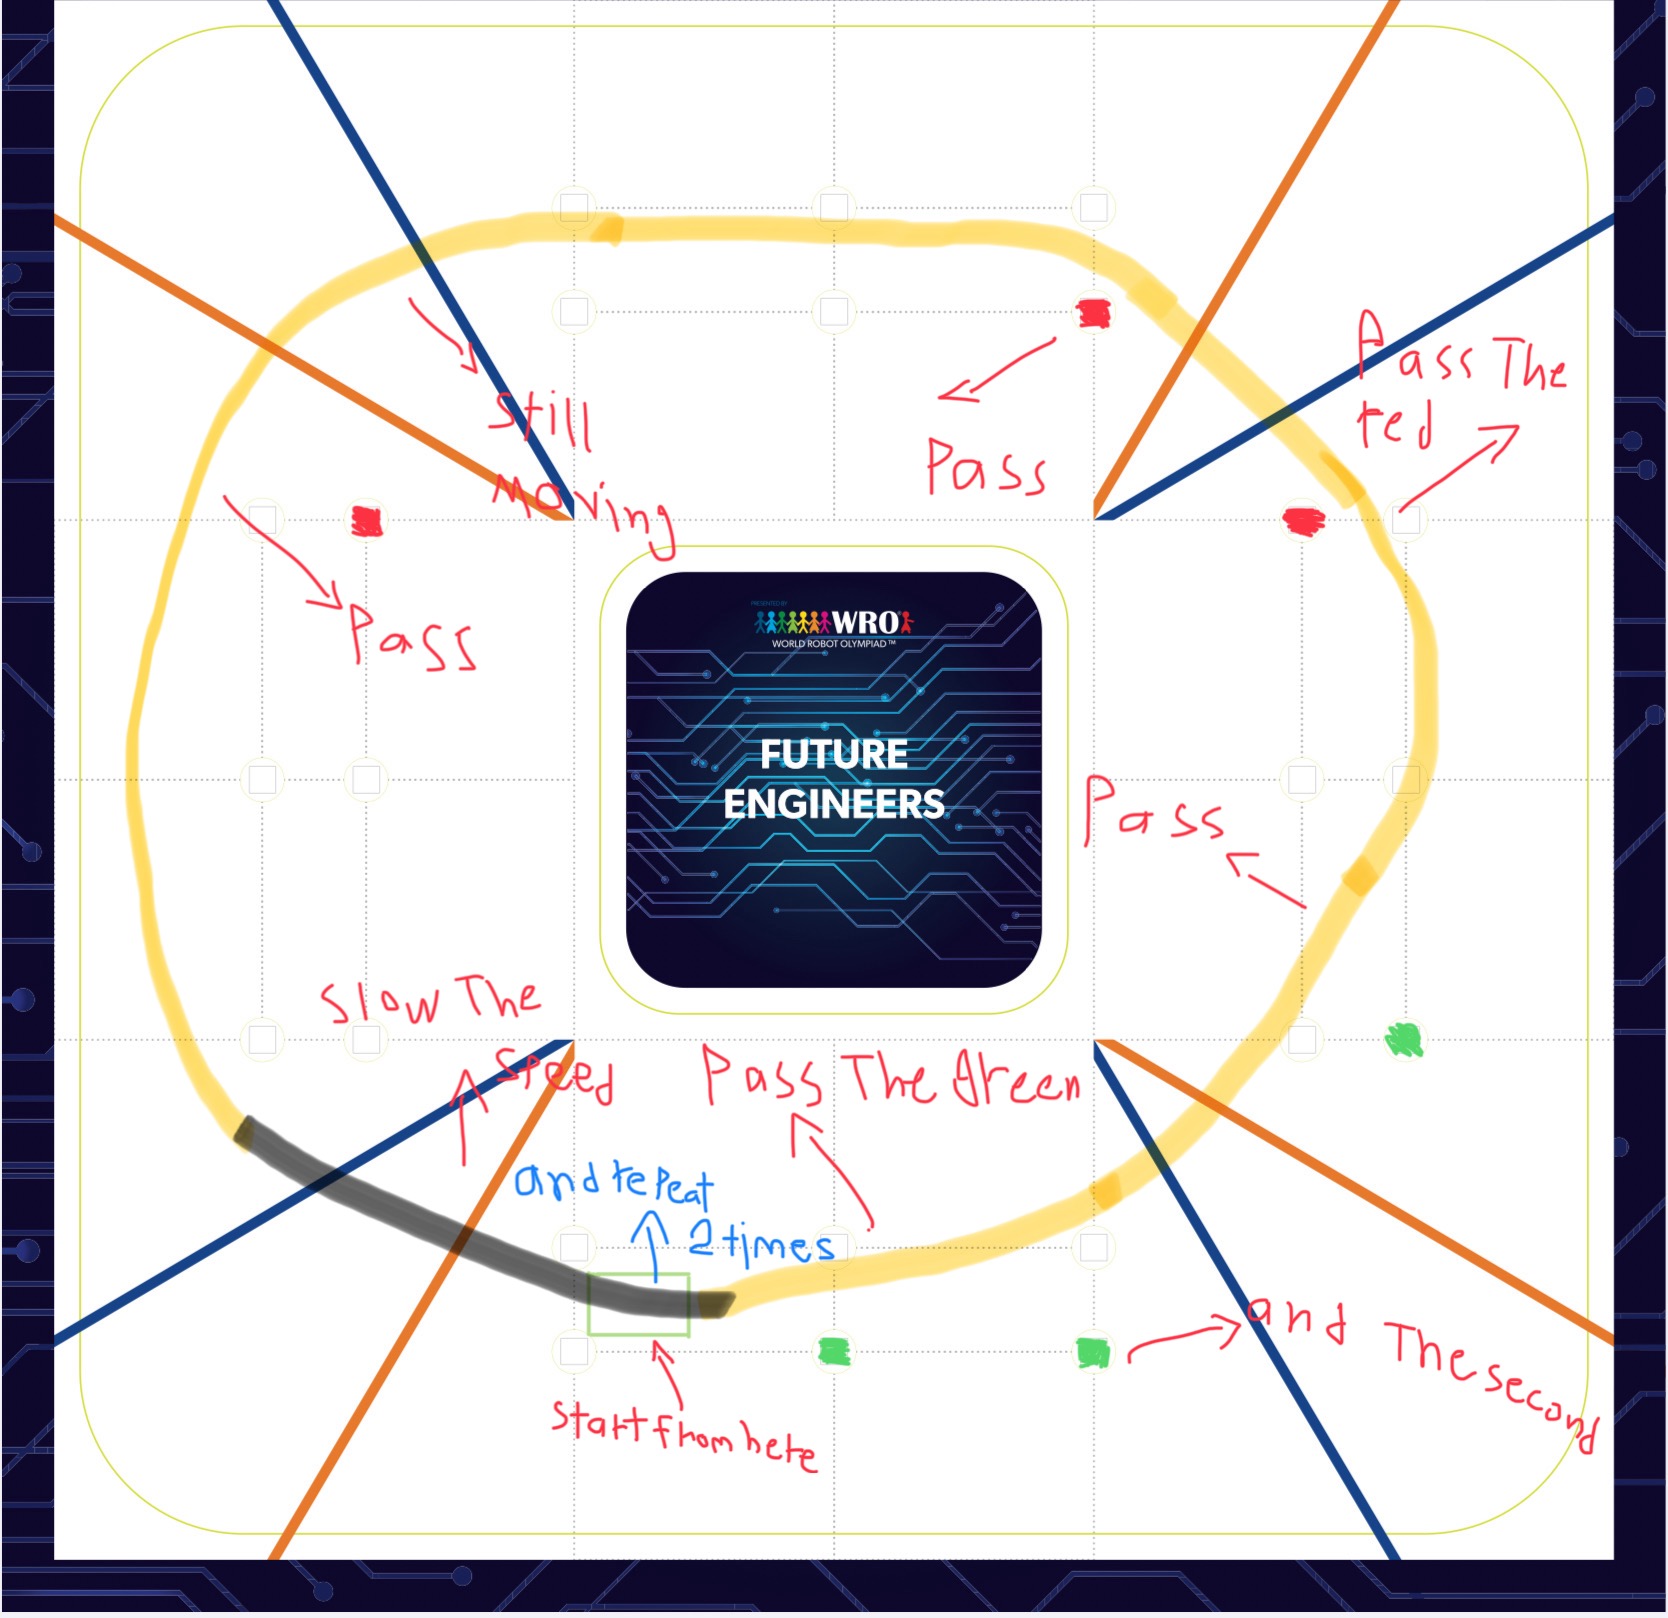 Pass The
red
Still
Moving
Pass
PRESENTED BY
WRO
WORLD ROBOT OLYMPIAD™
Pass
FUTURE
ENGINEERS
Pass
Slow The
Speed
Pass The Green
and repeat
2 times
and The second
Start from here